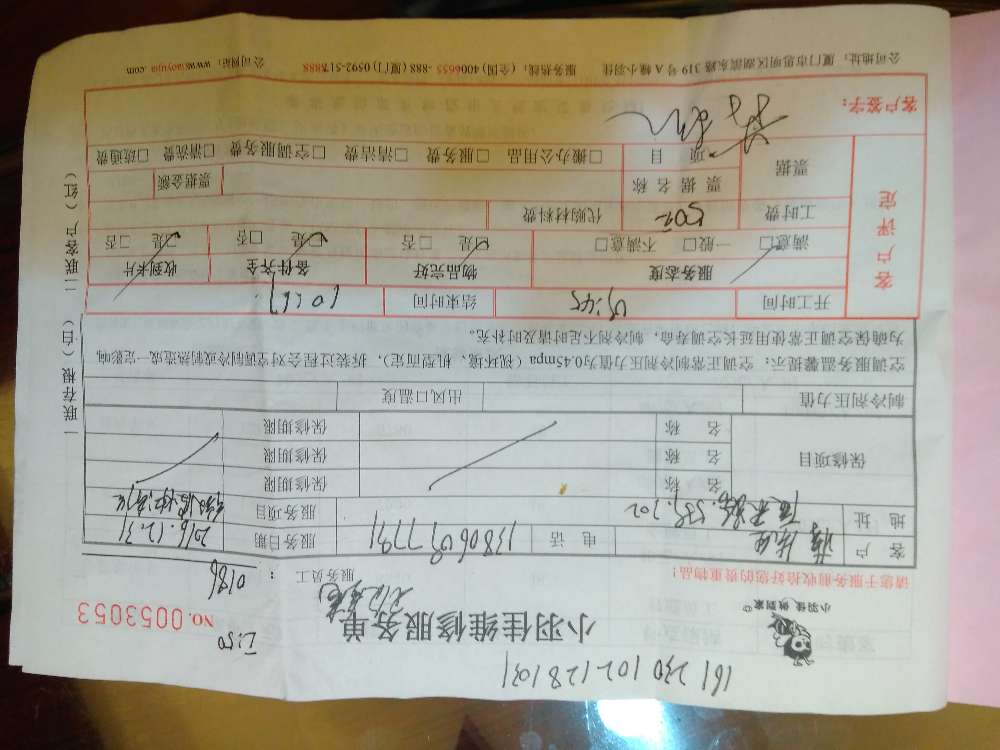 小羽佳维修服务单
NO.0053053
小羽佳 做到家
请您于服务前收拾好您的贵重物品！
服务员工： 0186
客户 电话 13806097791 服务日期 2016.12.31
地址 服务项目
保修项目 名称 保修期限
名称 保修期限
名称 保修期限
制冷剂压力值 出风口温度
空调服务温馨提示：空调正常制冷剂压力值为0.45mpa（视环境、机型而定），拆装过程会对空调制冷或制热造成一定影响，
为确保空调正常使用延长空调寿命，制冷剂不足时请及时补充。
一联存根（白） 二联客户（红）
客户评定
开工时间 结束时间
服务态度 物品完好 备件齐全 收到卡片
满意□ 一般□ 不满意□ □是 □否 □是 否□ □是 □否
工时费 代购材料费
票据 票据名称 票据金额
项目 □搬办公用品 □服务费 □清洁费 □空调服务费 □清洗费 □疏通费
客户签字：
公司地址：厦门市思明区湖滨东路319号A幢小羽佳 服务热线：（全国）4006655-888（厦门）0592-5178888 公司网站：www.xiaoyujia.com